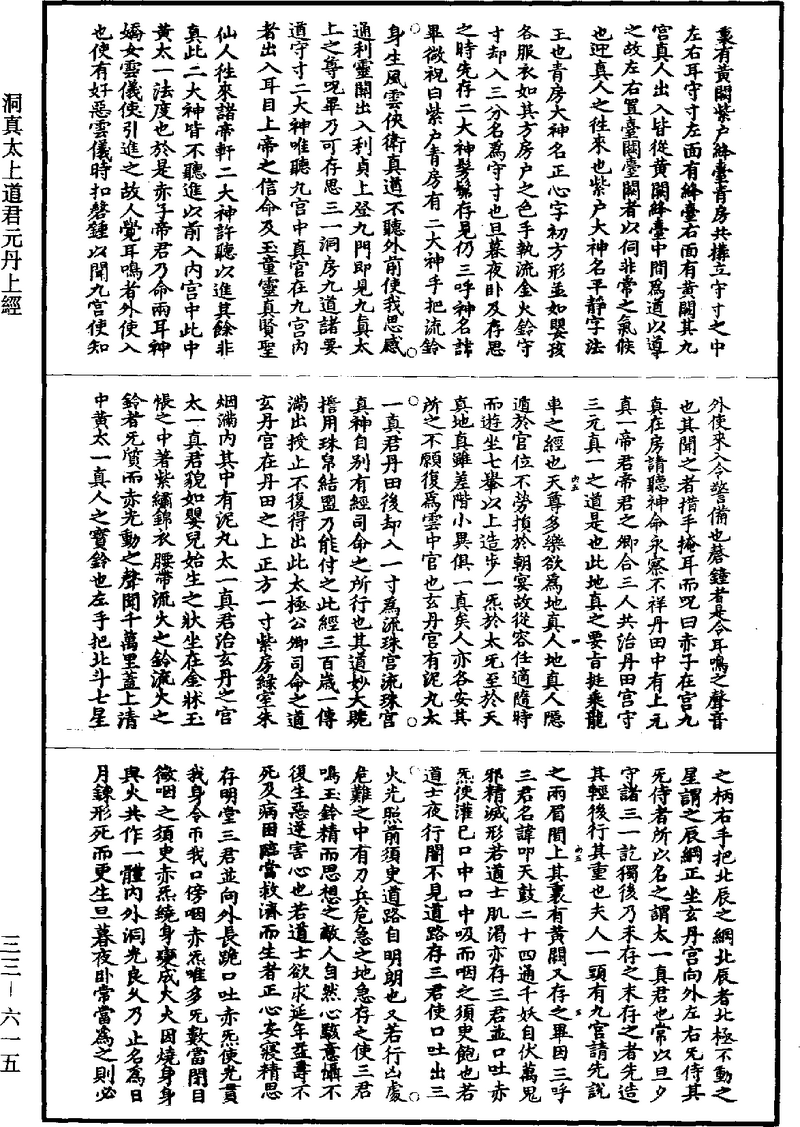 裏有黃闕紫戶絳臺青房共構立守寸之中
左右耳守寸左面有絳臺右面有黃闕其九
宮真人出入皆從黃闕絳臺中間為道以導
之故左右置臺闕臺闕者以伺非常之氣候
也迎真人之往來也紫戶大神名平靜字法
王也青房大神名正心字初方形並如嬰孩
各服衣如其方房戶之色手執流金火鈴守
寸却入三分名為守寸也旦暮夜臥及存思
之時先存二大神髣髴存見仍三呼神名諱
畢微祝曰紫戶青房有二大神手把流鈴
身生風雲俠衛真道不聽外前使我思感
通利靈關出入利貞上登九門即見九真太
上之尊呪畢乃可存思三一洞房九道諸要
道守寸二大神唯聽九宮中真官在九宮內
者出入耳目上帝之信命及玉童靈真賢聖
仙人往來諸帝軒二大神許聽以進其餘非
真此二大神皆不聽進以前入內宮中此中
黃太一法度也於是赤子帝君乃命兩耳神
嬌女雲儀使引進之故人覺耳鳴者外使入
也使有好惡雲儀時扣磬鍾以聞九宮使知
外使來入令警備也磬鐘者是令耳鳴之聲音
也其聞之者措手掩耳而呪曰赤子在宮九
真在房請聽神命永察不祥丹田中有上元
真一帝君帝君之卿合三人共治丹田宮守
三元真一之道是也此地真之要旨挺乘龍
車之經也天尊多樂欲為地真人地真人隱
遁於官位不勞損於朝宴故從容任適隨時
而遊坐七舉以上造步一炁於太无至於天
真地真雖差階小異俱一真矣人亦各安其
所之不願復為雲中官也玄丹宮有泥丸太
一真君丹田後却入一寸為流珠宮流珠宮
真神自別有經司命之所行也其道妙大晚
擔用珠帛結盟乃能付之此經三百歲一傳
滿出授止不復得出此太極公卿司命之道
玄丹宮在丹田之上正方一寸紫房綠室朱
烟滿內其中有泥丸太一真君治玄丹之宮
太一真君貌如嬰兒始生之狀坐在金牀玉
帳之中著紫繡錦衣腰帶流火之鈴流火之
鈴者无質而赤光動之聲聞千萬里蓋上清
中黃太一真人之寶鈴也左手把北斗七星
之柄右手把北辰之綱北辰者北極不動之
星謂之辰綱正坐玄丹宮向外左右无侍其
无侍者所以名之謂太一真君也常以旦夕
守諸三一訖獨後乃末存之末存之者先造
其輕後行其重也夫人一頭有九宮請先說
之兩眉間上其裏有黃闕又存之畢因三呼
三君名諱叩天鼓二十四通千妖自伏萬鬼
邪精滅形若道士肌渴亦存三君並口吐赤
炁使灌己口中口中吸而咽之須臾飽也若
道士夜行闇不見道路存三君使口吐出三
火光照前須臾道路自明朗也又若行凶處
危難之中有刀兵危急之地急存之使三君
鳴玉鈴精而思想之敵人自然心駭意懾不
復生惡逆害心也若道士欲求延年益壽不
死及病困臨當救濟而生者正心安寢精思
存明堂三君並向外長跪口吐赤炁使光貫
我身令帀我口傍咽赤炁唯多无數當閉目
微咽之須臾赤炁繞身變成火火因燒身身
與火共作一體內外洞光良久乃止名為日
月鍊形死而更生旦暮夜臥常當為之則必
洞真太上道君元丹上經
三三－六一五